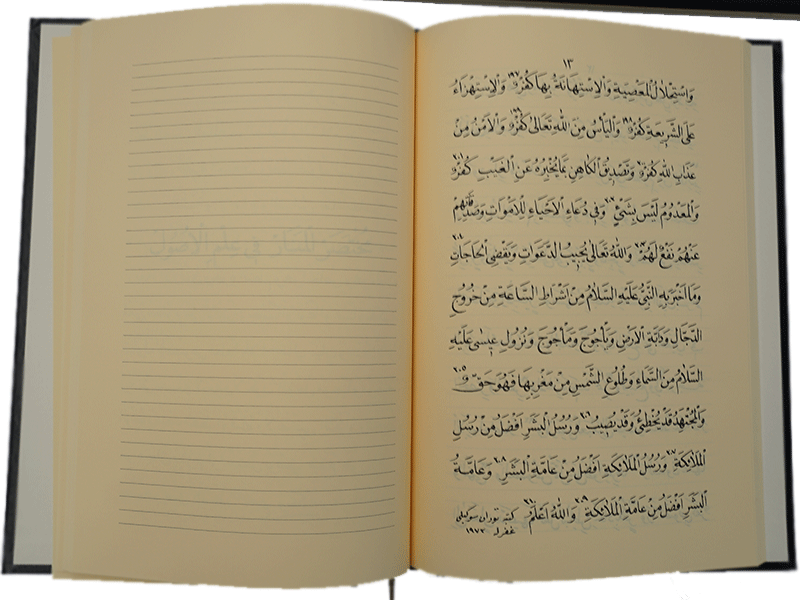 ١٣
وَاسْتِحْلَالُ الْمَعْصِيَةِ وَالْاِسْتِهَانَةُ بِهَا كُفْرٌ ١٩٧ وَالْاِسْتِهْزَاءُ
عَلَى الشَّرِيعَةِ كُفْرٌ ١٩٨ وَالْيَأْسُ مِنَ اللّٰهِ تَعَالٰى كُفْرٌ ١٩٩ وَالْاَمْنُ مِنْ
عَذَابِ اللّٰهِ كُفْرٌ ٢٠٠ وَتَصْدِيقُ الْكَاهِنِ بِمَا يُخْبِرُهُ عَنِ الْغَيْبِ كُفْرٌ ٢٠١
وَالْمَعْدُومُ لَيْسَ بِشَيْءٍ ٢٠٢ وَفِي دُعَاءِ الْاَحْيَاءِ لِلْاَمْوَاتِ وَصَدَقَتِهِمْ
عَنْهُمْ نَفْعٌ لَهُمْ ٢٠٣ وَاللّٰهُ تَعَالٰى يُجِيبُ الدَّعَوَاتِ وَيَقْضِي الْحَاجَاتِ ٢٠٤
وَمَا اَخْبَرَ بِهِ النَّبِيُّ عَلَيْهِ السَّلَامُ مِنْ اَشْرَاطِ السَّاعَةِ مِنْ خُرُوجِ
الدَّجَّالِ وَدَابَّةِ الْاَرْضِ وَيَأْجُوجَ وَمَأْجُوجَ وَنُزُولِ عِيسٰى عَلَيْهِ
السَّلَامُ مِنَ السَّمَاءِ وَطُلُوعِ الشَّمْسِ مِنْ مَغْرِبِهَا فَهُوَ حَقٌّ ٢٠٥
وَالْمُجْتَهِدُ قَدْ يُخْطِئُ وَقَدْ يُصِيبُ ٢٠٦ وَرُسُلُ الْبَشَرِ اَفْضَلُ مِنْ رُسُلِ
الْمَلَائِكَةِ ٢٠٧ وَرُسُلُ الْمَلَائِكَةِ اَفْضَلُ مِنْ عَامَّةِ الْبَشَرِ ٢٠٨ وَعَامَّةُ
الْبَشَرِ اَفْضَلُ مِنْ عَامَّةِ الْمَلَائِكَةِ ٢٠٩ وَاللّٰهُ اَعْلَمُ ٢١٠
كتبه توران سوكيلى
غفرله ١٩٧٢